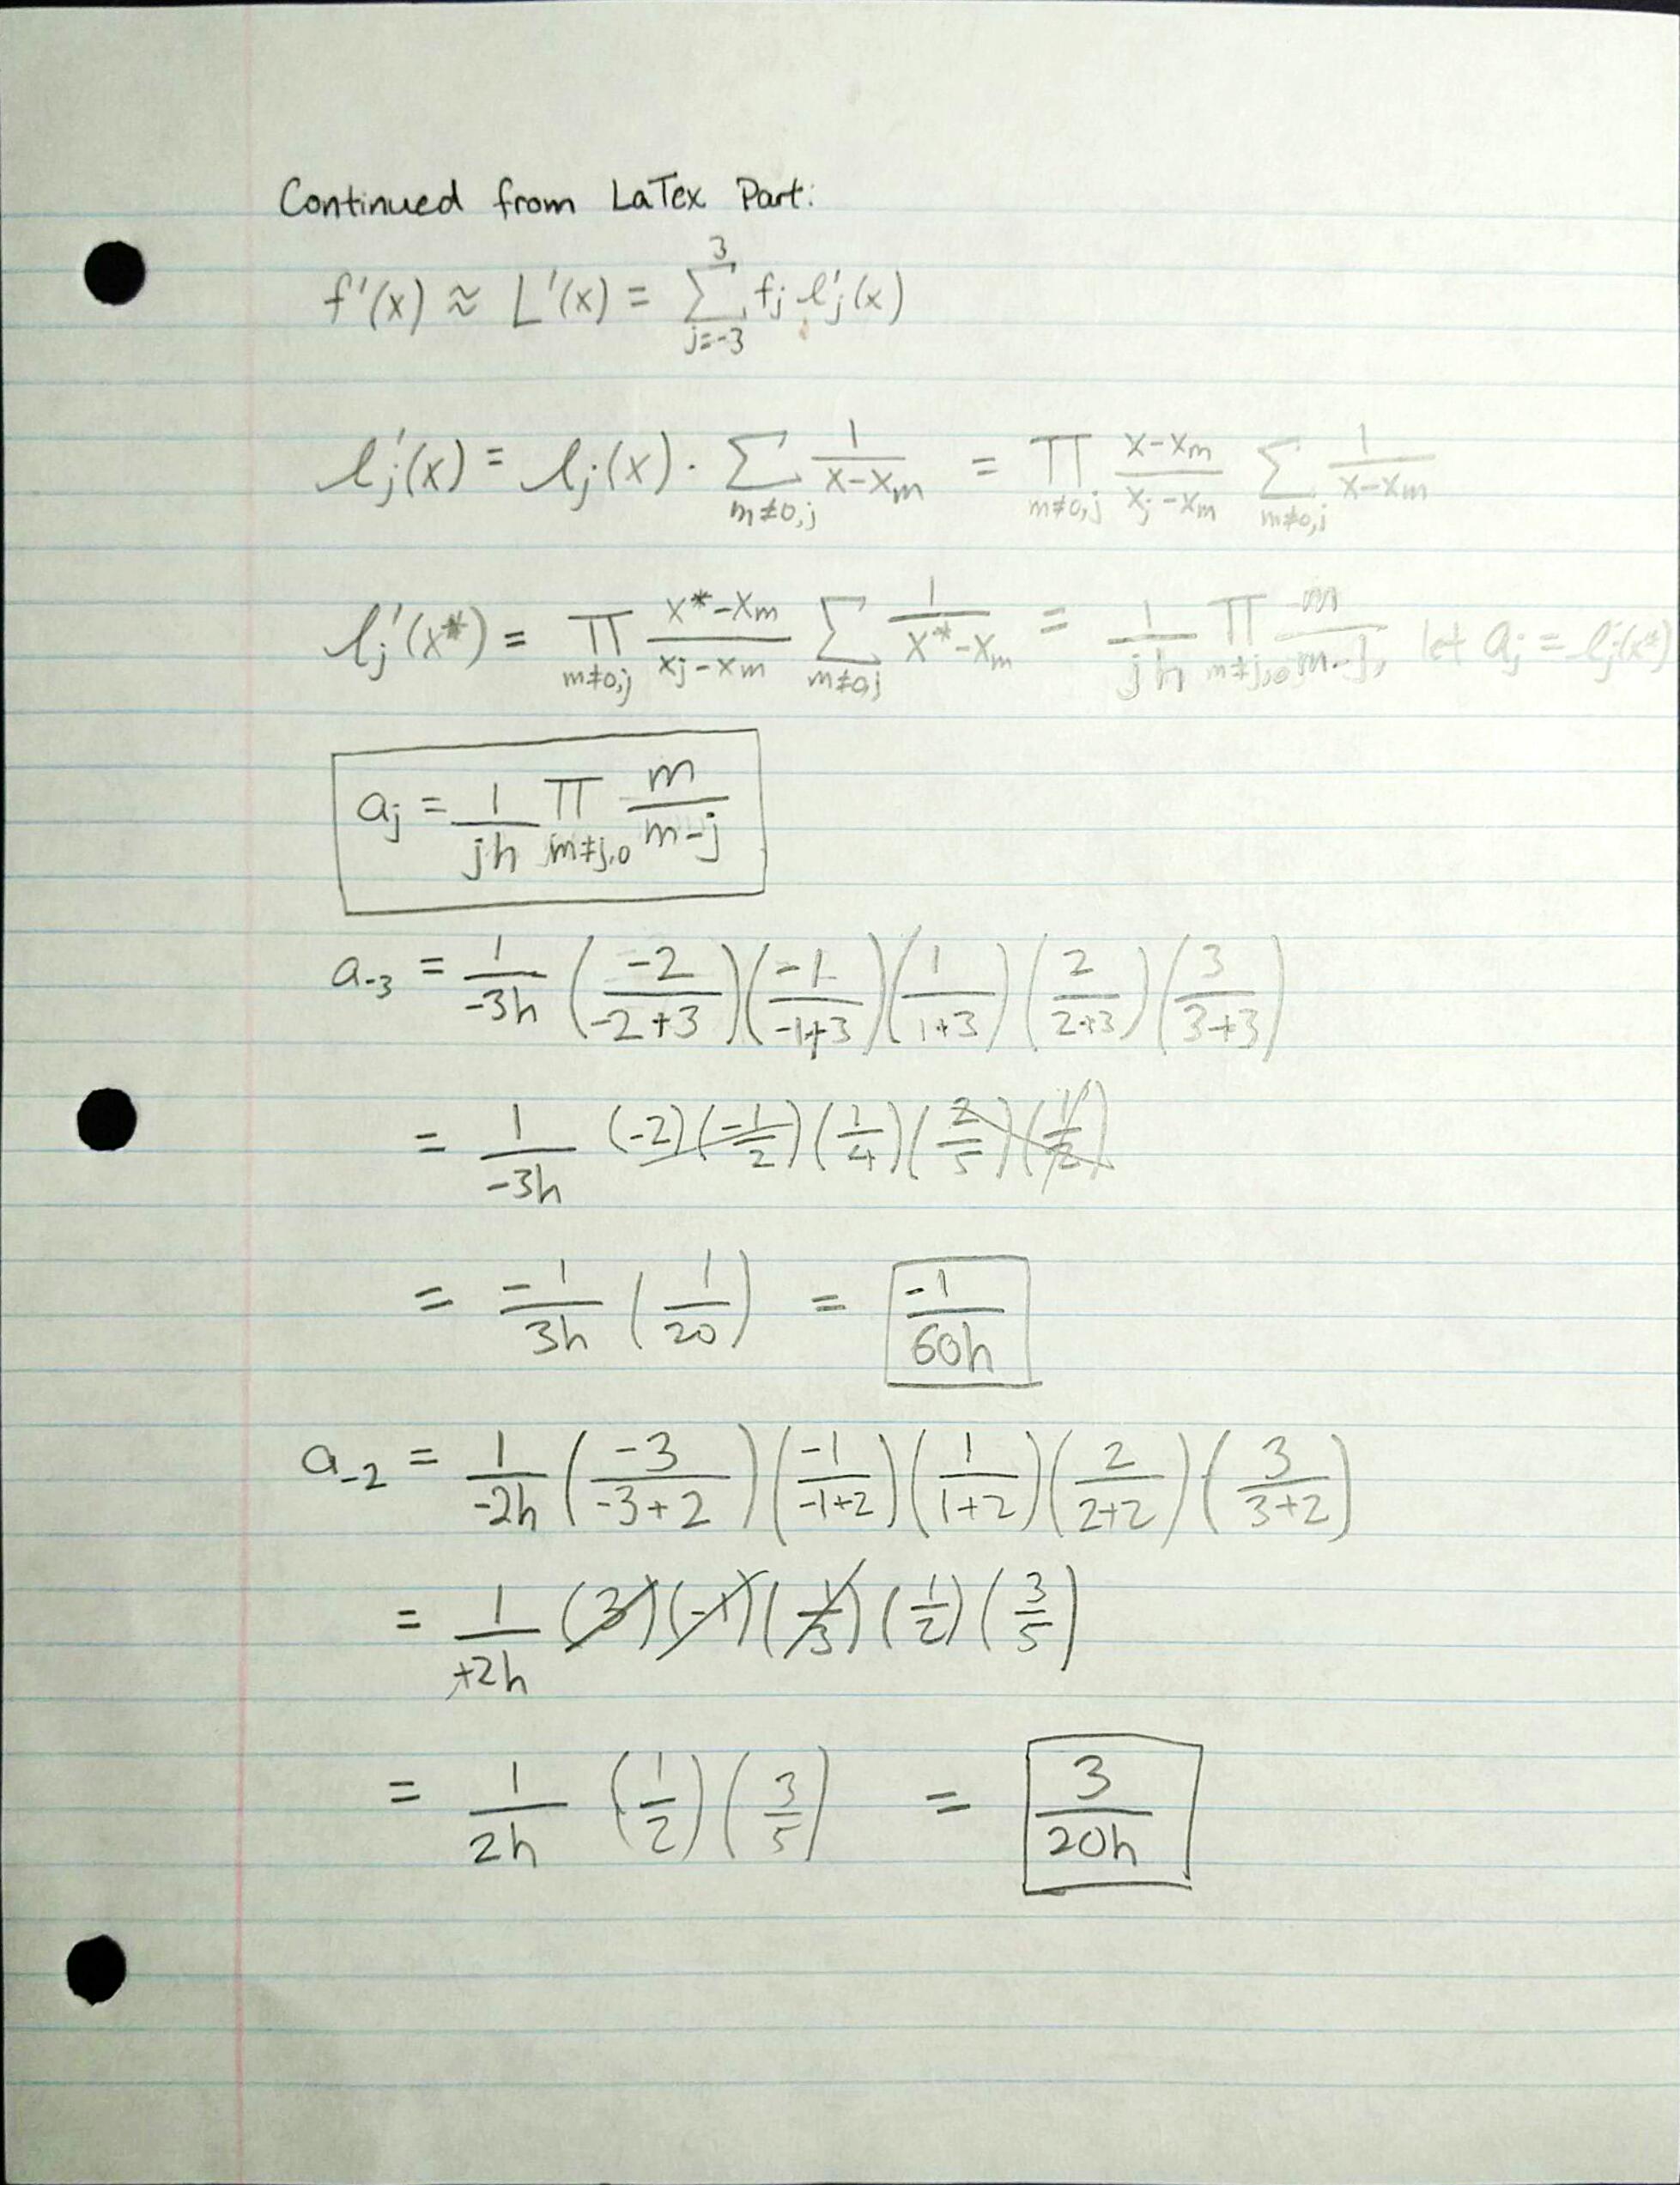 Continued from LaTex Part:
f'(x) ≈ L'(x) = \sum_{j=-3}^{3} f_j l'_j(x)
l'_j(x) = l_j(x) · \sum_{m≠0,j} \frac{1}{x-x_m} = \prod_{m≠0,j} \frac{x-x_m}{x_j-x_m} \sum_{m≠0,j} \frac{1}{x-x_m}
l'_j(x*) = \prod_{m≠0,j} \frac{x*-x_m}{x_j-x_m} \sum_{m≠0,j} \frac{1}{x*-x_m} = \frac{1}{jh} \prod_{m≠j,0} \frac{-m}{m-j}, let a_j = l'_j(x*)
a_j = \frac{1}{jh} \prod_{m≠j,0} \frac{m}{m-j}
a_{-3} = \frac{1}{-3h} (\frac{-2}{-2+3})(\frac{-1}{-1+3})(\frac{1}{1+3})(\frac{2}{2+3})(\frac{3}{3+3})
= \frac{1}{-3h} (-2)(\frac{-1}{2})(\frac{1}{4})(\frac{2}{5})(\frac{1}{2})
= \frac{-1}{3h} (\frac{1}{20}) = \frac{-1}{60h}
a_{-2} = \frac{1}{-2h} (\frac{-3}{-3+2})(\frac{-1}{-1+2})(\frac{1}{1+2})(\frac{2}{2+2})(\frac{3}{3+2})
= \frac{1}{+2h} (3)(-1)(\frac{1}{3})(\frac{1}{2})(\frac{3}{5})
= \frac{1}{2h} (\frac{1}{2})(\frac{3}{5}) = \frac{3}{20h}